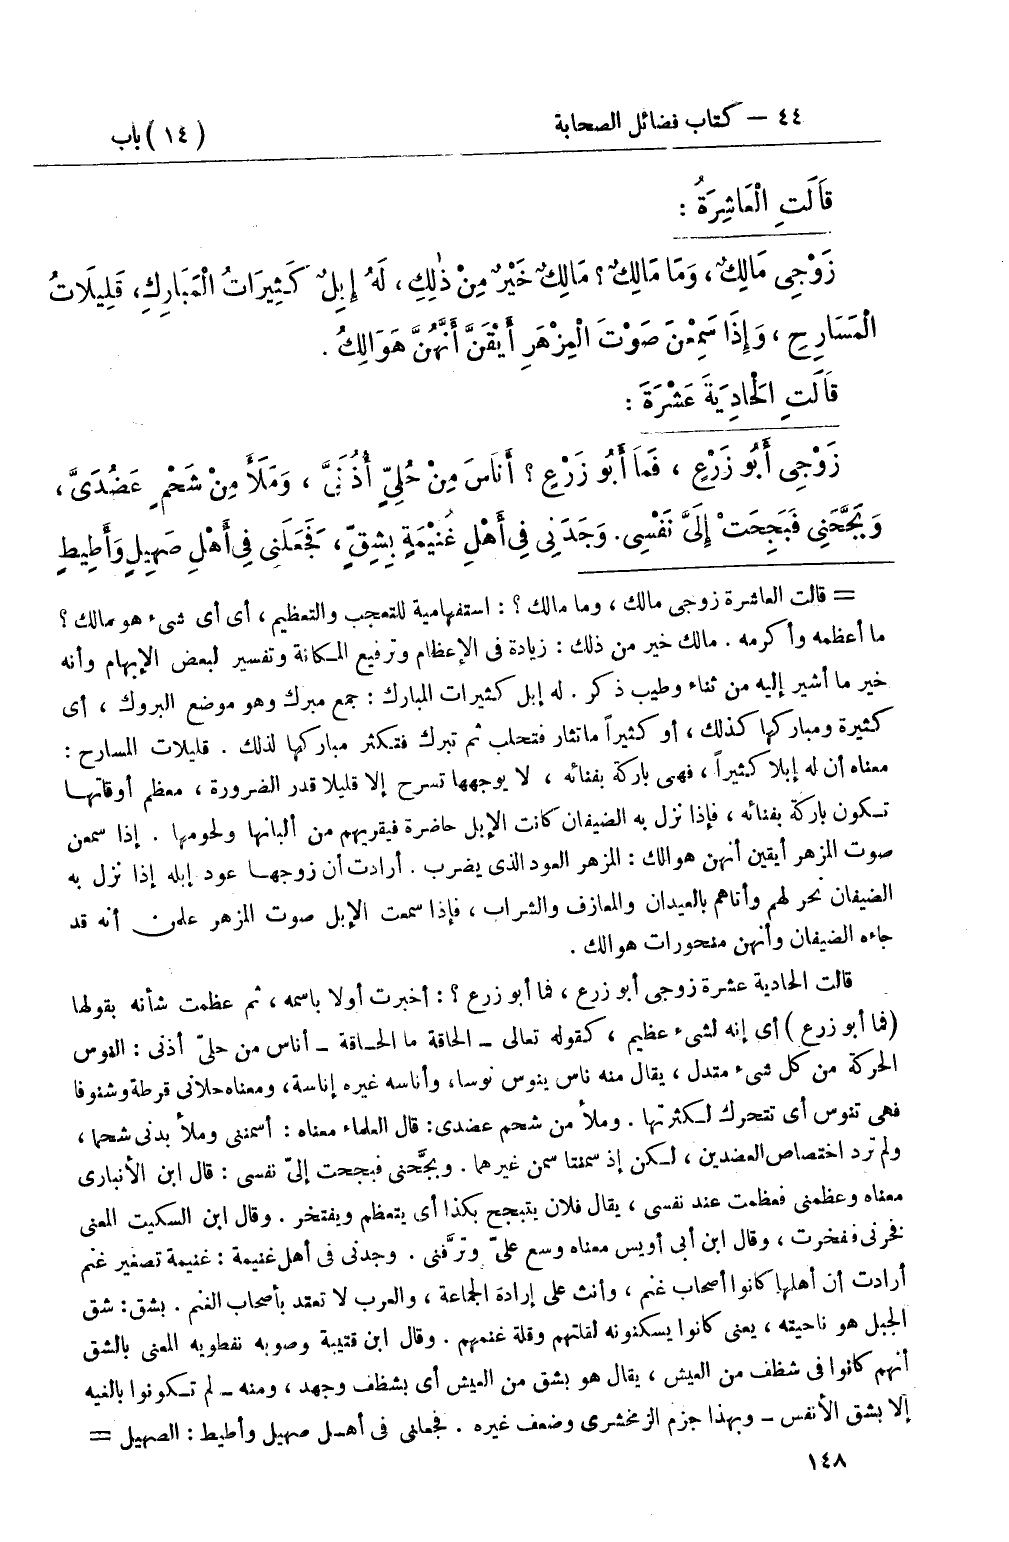 ٤٤ – كتاب فضائل الصحابة
(١٤) باب
قَالَتِ الْعَاشِرَةُ :
زَوْجِى مَالِكٌ، وَمَا مَالِكٌ؟ مَالِكٌ خَيْرٌ مِنْ ذٰلِكِ، لَهُ إِبِلٌ كَثِيرَاتُ الْمَبَارِكِ، قَلِيلَاتُ
الْمَسَارِحِ، وَإِذَا سَمِعْنَ صَوْتَ الْمِزْهَرِ أَيْقَنَّ أَنَّهُنَّ هَوَالِكُ.
قَالَتِ الْحَادِيَةَ عَشْرَةَ :
زَوْجِى أَبُو زَرْعٍ، فَمَا أَبُو زَرْعٍ؟ أَنَاسَ مِنْ حُلِيٍّ أُذُنَيَّ، وَمَلَأَ مِنْ شَحْمٍ عَضُدَىَّ،
وَبَجَّحَنِى فَبَجِحَتْ إِلَىَّ نَفْسِى. وَجَدَنِى فِى أَهْلِ غُنَيْمَةٍ بِشِقٍّ، فَجَعَلَنِى فِى أَهْلِ صَهِيلٍ وَأَطِيطٍ
= قالت العاشرة زوجى مالك، وما مالك؟ : استفهامية للتعجب والتعظيم، أى أى شىء هو مالك؟
ما أعظمه وأكرمه. مالك خير من ذلك : زيادة فى الإعظام وترفيع المكانة وتفسير لبعض الإبهام وأنه
خير ما أشير إليه من ثناء وطيب ذكر. له إبل كثيرات المبارك : جمع مبرك وهو موضع البروك، أى
كثيرة ومباركها كذلك، أو كثيراً ما تثار فتحلب ثم تبرك فتكثر مباركها لذلك. قليلات المسارح :
معناه أن له إبلا كثيراً، فهى باركة بفنائه، لا يوجهها تسرح إلا قليلا قدر الضرورة، معظم أوقاتها
تكون باركة بفنائه، فإذا نزل به الضيفان كانت الإبل حاضرة فيقريهم من ألبانها ولحومها. إذا سمعن
صوت المزهر أيقين أنهن هوالك : المزهر العود الذى يضرب. أرادت أن زوجها عود إبله إذا نزل به
الضيفان نحر لهم وأتاهم بالعيدان والمعازف والشراب، فإذا سمعت الإبل صوت المزهر علمن أنه قد
جاءه الضيفان وأنهن منحورات هوالك.
قالت الحادية عشرة زوجى أبو زرع، فما أبو زرع؟ : أخبرت أولا باسمه، ثم عظمت شأنه بقولها
(فما أبو زرع) أى إنه لشىء عظيم، كقوله تعالى – الحاقة ما الحاقة – أناس من حلىّ أذنى : النوس
الحركة من كل شىء متدل، يقال منه ناس ينوس نوسا، وأناسه غيره إناسة، ومعناه حلانى قرطة وشنوفا
فهى تنوس أى تتحرك لكثرتها. وملأ من شحم عضدى: قال العلماء معناه : أسمننى وملأ بدنى شحما،
ولم ترد اختصاص العضدين، لكن إذ سمنتا سمن غيرهما. وبجَّحنى فبجحت إلىّ نفسى : قال ابن الأنبارى
معناه وعظمنى فعظمت عند نفسى، يقال فلان يتبجح بكذا أى يتعظم ويفتخر. وقال ابن السكيت المعنى
فخرنى ففخرت، وقال ابن أبى أويس معناه وسع علىّ وترَّفنى. وجدنى فى أهل غنيمة : غنيمة تصغير غنم
أرادت أن أهلها كانوا أصحاب غنم، وأنث على إرادة الجماعة، والعرب لا تعتد بأصحاب الغنم. بشق: شق
الجبل هو ناحيته، يعنى كانوا يسكنونه لقلتهم وقلة غنمهم. وقال ابن قتيبة وصوبه نفطويه المعنى بالشق
أنهم كانوا فى شظف من العيش، يقال هو بشق من العيش أى بشظف وجهد، ومنه – لم تكونوا بالغيه
إلا بشق الأنفس – وبهذا جزم الزمخشرى وضعف غيره. فجعلنى فى أهل صهيل وأطيط : الصهيل =
١٤٨